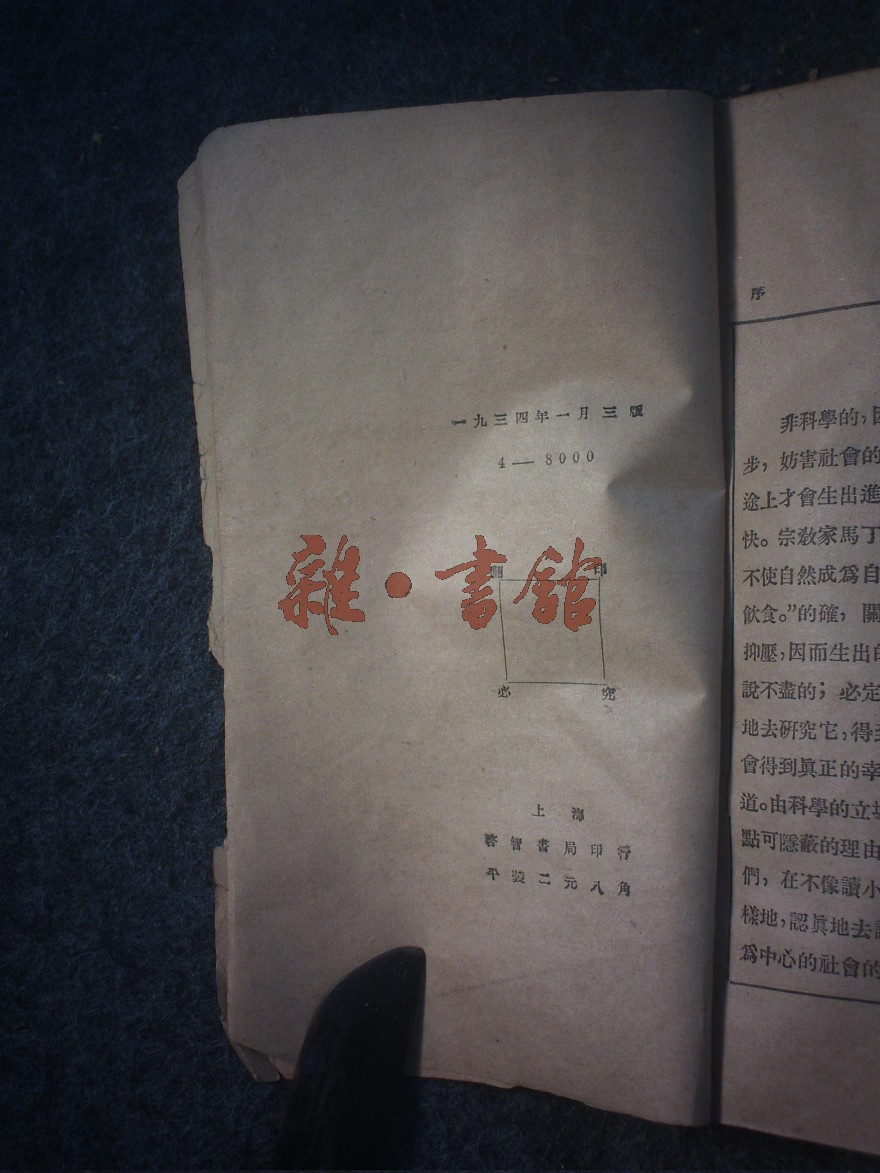 一九三四年一月三版
4—8000
翻印
必究
上海
啓智書局印行
平裝二元八角
雜·書館
序
非科學的，因
步，妨害社會的
途上才會生出進
快。宗教家馬丁
不使自然成爲自
飲食。”的確，關
抑壓，因而生出的
說不盡的；必定
地去研究它，得到
會得到眞正的幸
道。由科學的立場
點可隱蔽的理由
們，在不像讀小
樣地，認眞地去讀
爲中心的社會的